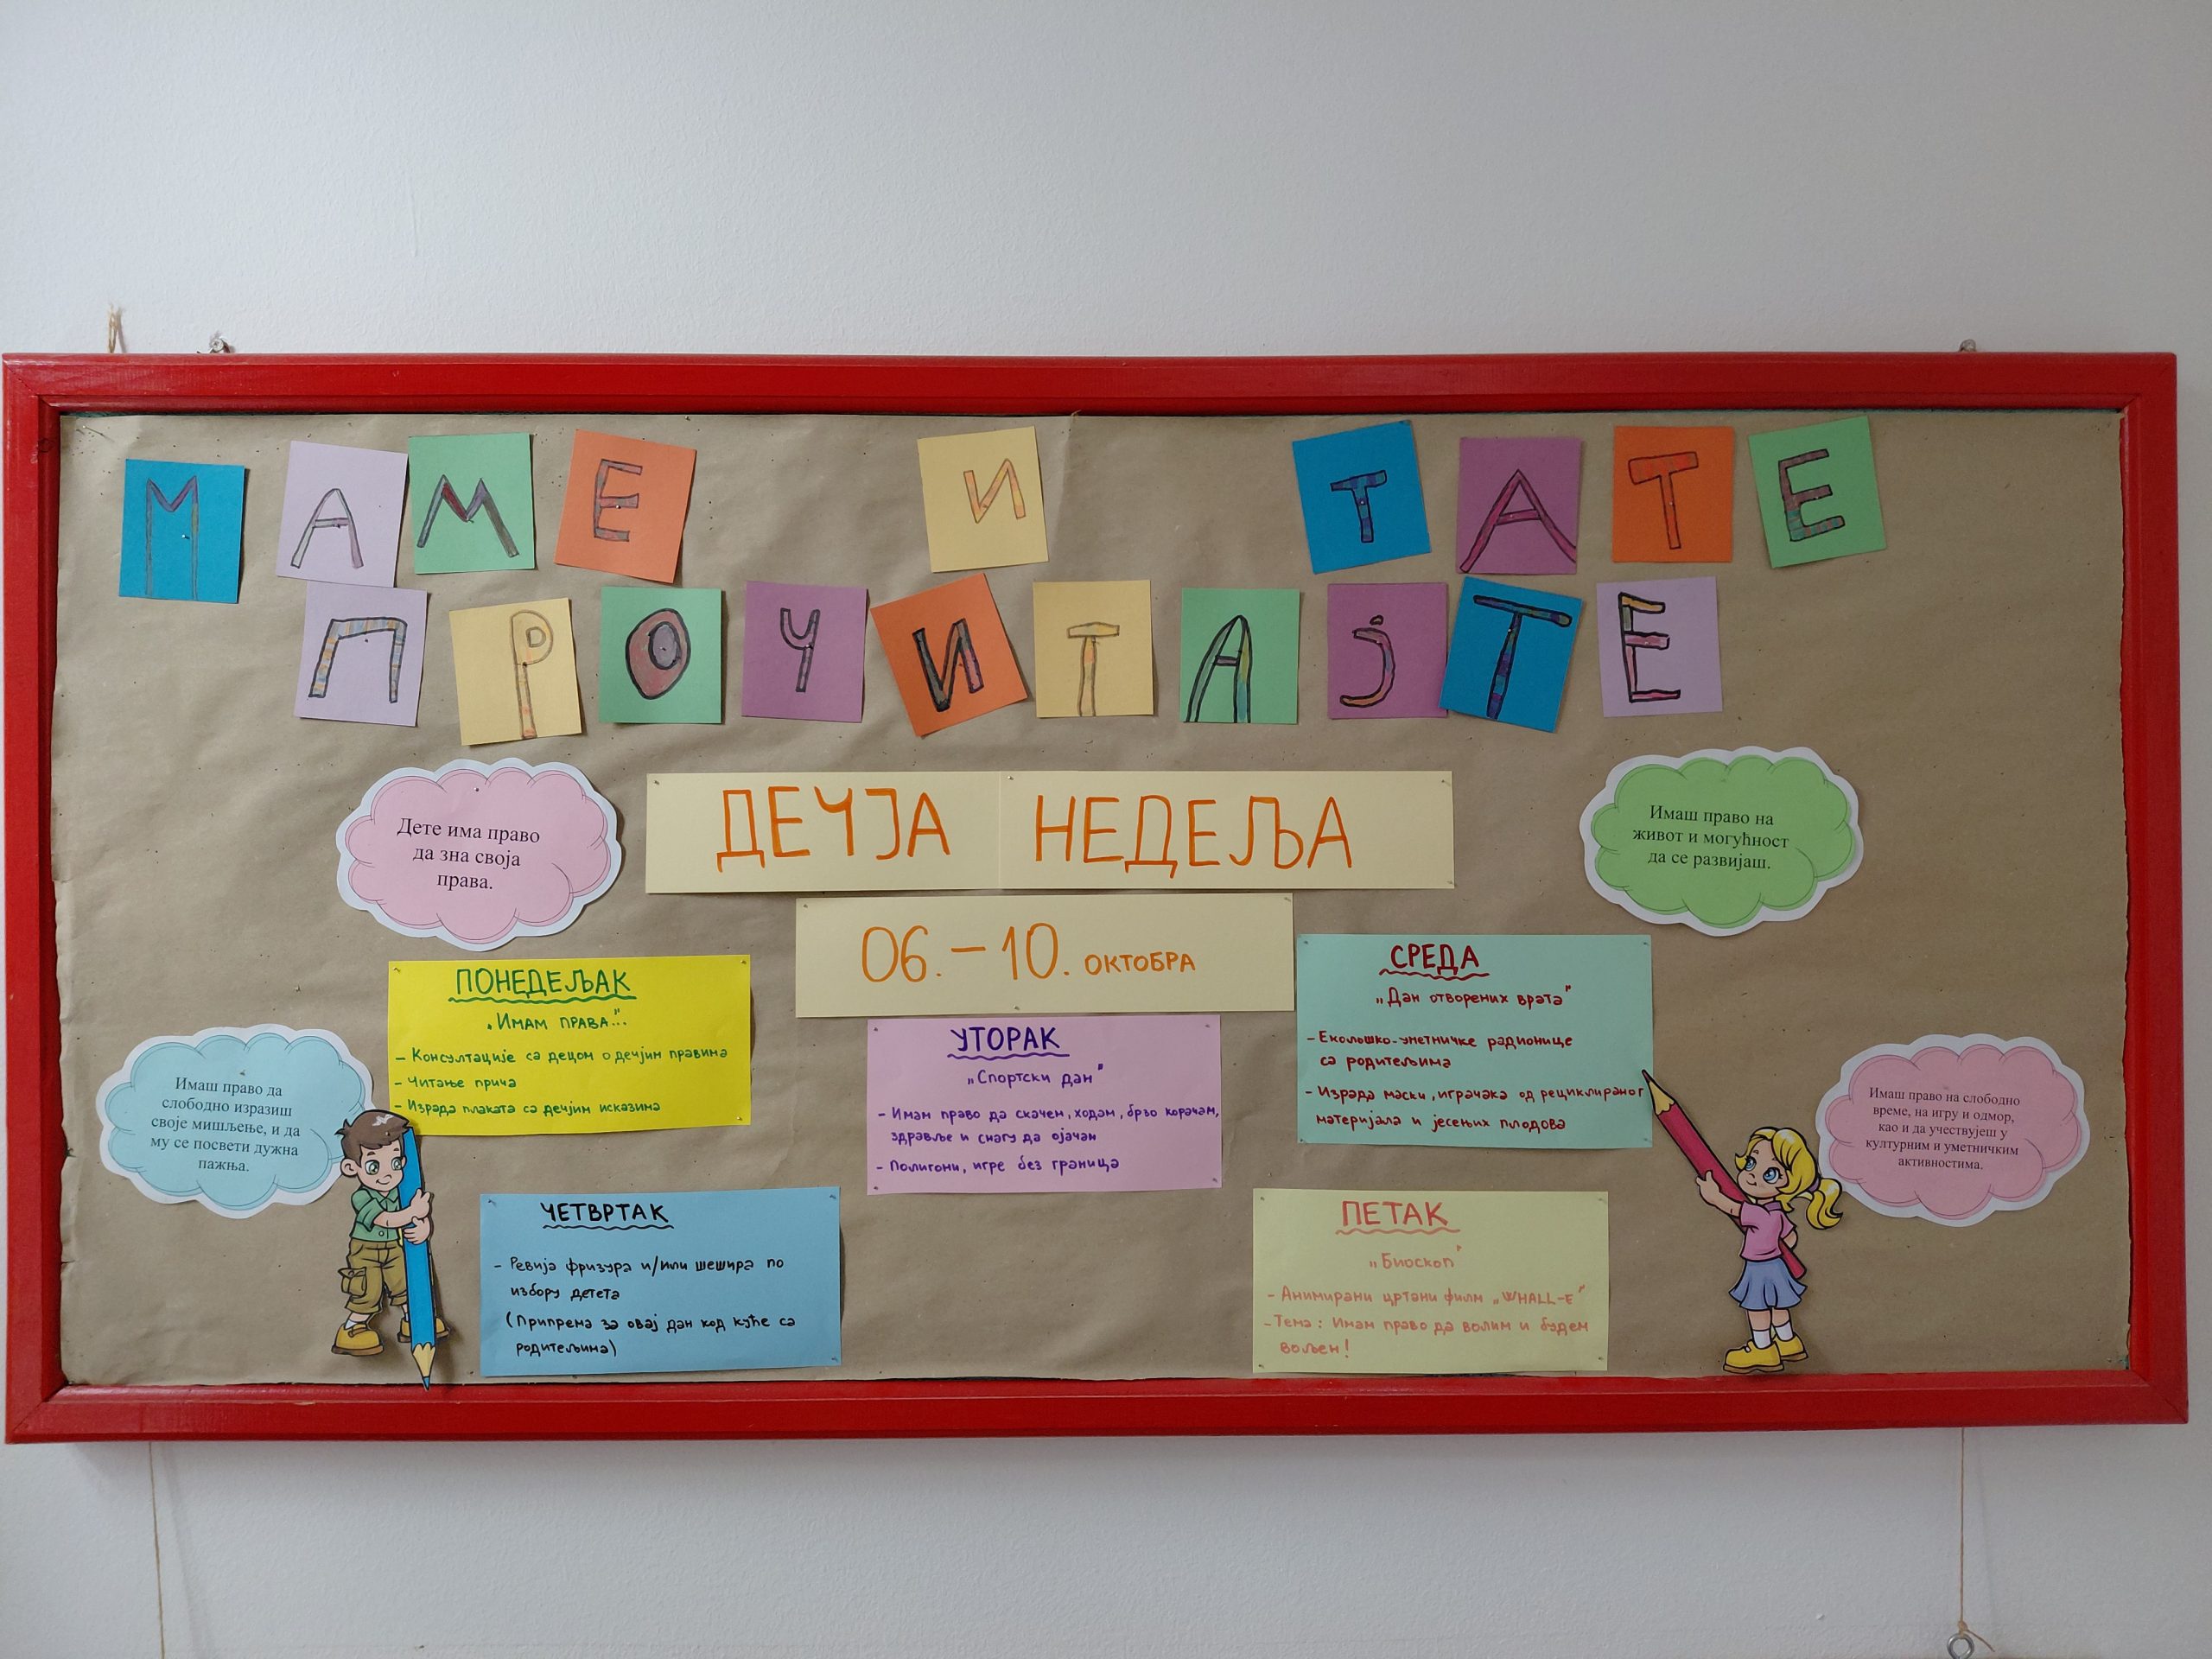 МАМЕ И ТАТЕ
ПРОЧИТАЈТЕ
ДЕЧЈА НЕДЕЉА
06.-10. ОКТОБРА
Дете има право
да зна своја
права.
Имаш право на
живот и могућност
да се развијаш.
Имаш право да
слободно изразиш
своје мишљење, и да
му се посвети дужна
пажња.
ПОНЕДЕЉАК
„ИМАМ ПРАВА"...
- Консултације са децом о дечјим правима
- Читање прича
- Израда плаката са дечјим исказима
УТОРАК
„Спортски дан"
- Имам право да скачем, ходам, брзо корачам,
здравље и снагу да ојачам
- Полигони, игре без граница
СРЕДА
„Дан отворених врата"
- Еколошко-уметничке радионице
са родитељима
- Израда маски, играчака од рециклираног
материјала и јесењих плодова
Имаш право на слободно
време, на игру и одмор,
као и да учествујеш у
културним и уметничким
активностима.
ЧЕТВРТАК
- Ревија фризура и/или шешира по
избору детета
(Припрема за овај дан код куће са
родитељима)
ПЕТАК
„Биоскоп"
- Анимирани цртани филм „WHALL-E"
- Тема: Имам право да волим и будем
вољен!